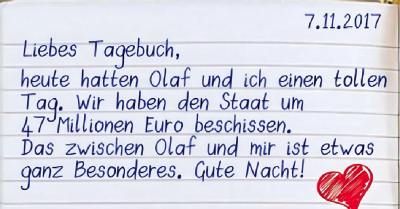 7.11.2017
Liebes Tagebuch,
heute hatten Olaf und ich einen tollen
Tag. Wir haben den Staat um
47 Millionen Euro beschissen.
Das zwischen Olaf und mir ist etwas
ganz Besonderes. Gute Nacht!